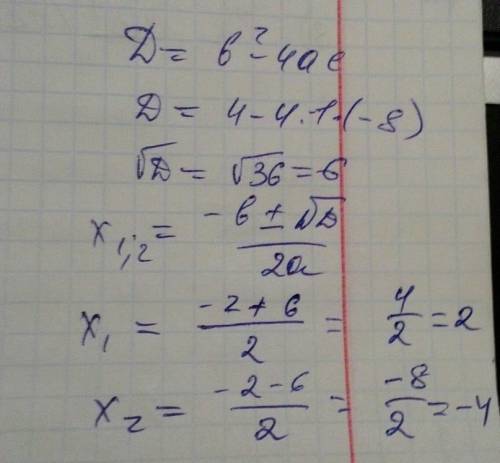 D = b² - 4ac
D = 4 - 4 · 1 · (-8)
√D = √36 = 6
x₁;₂ = (-b ± √D)/(2a)
x₁ = (-2 + 6)/2 = 4/2 = 2
x₂ = (-2 - 6)/2 = (-8)/2 = -4